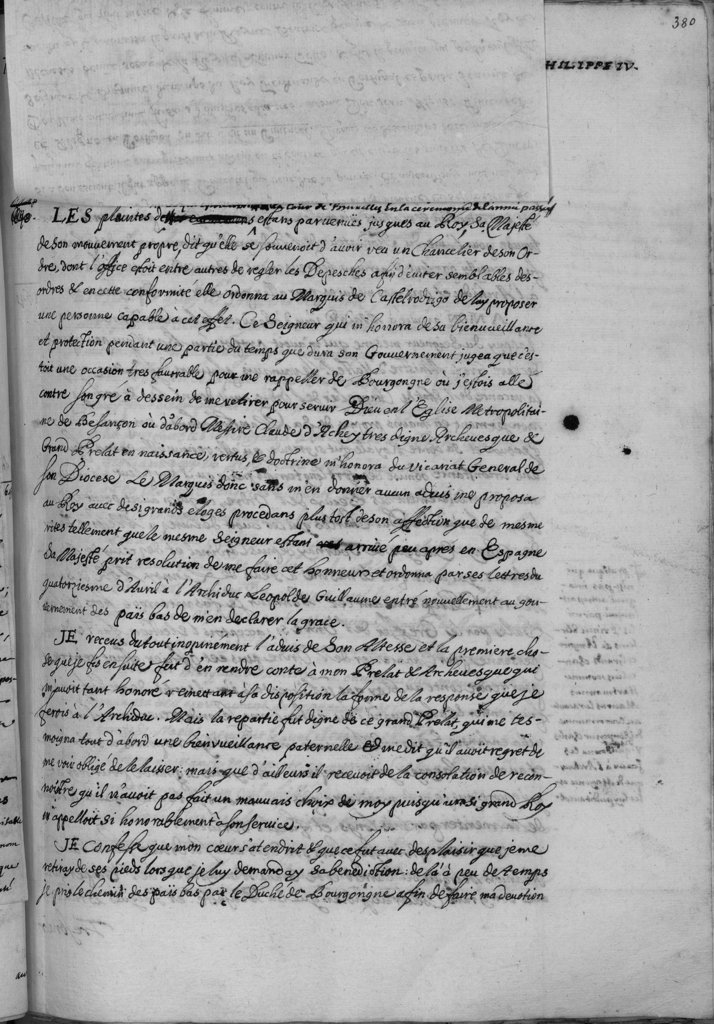 380
HILIPPE IV.
cour de Bruxelles en la ceremonie de l'année passée
LES plaintes de estans parvenuës jusques au Roy, Sa Majesté
de son mouvement propre, dit qu'elle se souvenoit d'avoir veu un Chancelier de son Or-
dre, dont l'office estoit entre autres de regler les Depesches afin d'éviter semblables des-
ordres & en cette conformité elle ordonna au Marquis de Castelrodrigo de luy proposer
une personne capable à cet effet. Ce Seigneur qui m'honora de sa bienvueillance
et protection pendant une partie du temps que dura son Gouvernement jugea que c'es-
toit une occasion tres favorable pour me rappeller de Bourgongne où j'estois allé
contre son gré à dessein de me retirer pour servir Dieu en l'Eglise Metropolitai-
ne de Besançon où d'abord Messire Claude d'Achey tres digne Archevesque &
Grand Prelat en naissance vertus, & doctrine m'honora du vicariat General de
son Diocese Le Marquis donc sans m'en donner aucun advis me proposa
au Roy avec de si grands eloges procedans plustost de son affection que de mesme
rites tellement que le mesme Seigneur estant arrivé peu apres en Espagne
Sa Majesté prit resolution de me faire cet honneur et ordonna par ses lettres du
quatorziesme d'Avril à l'Archiduc Leopolde Guillaume entré nouvellement au gou-
vernement des païs bas de m'en declarer la grace.
JE receus du tout inopinement l'advis de Son Altesse et la premiere cho-
se que je fis en suite fut d'en rendre conte à mon Prelat & Archevesque qui
m'avoit tant honoré remettant à sa disposition la forme de la response que je
ferois à l'Archiduc. Mais la repartie fut digne de ce grand Prelat, qui me tes-
moigna tout d'abord une bienvueillance paternelle & me dit qu'il avoit regret de
me voir obligé de le laisser: mais que d'ailleurs il recevoit de la consolation de recon-
noitre qu'il n'avoit pas fait un mauvais choix de moy puisqu'un si grand Roy
m'appelloit si honorablement à son service.
JE Confesse que mon cœur s'atendrit & que ce fut avec desplaisir que je me
retiray de ses pieds lors que je luy demanday sa benediction: de là à peu de temps
Je pris le chemin des païs bas par le Duché de Bourgongne afin de faire ma devotion